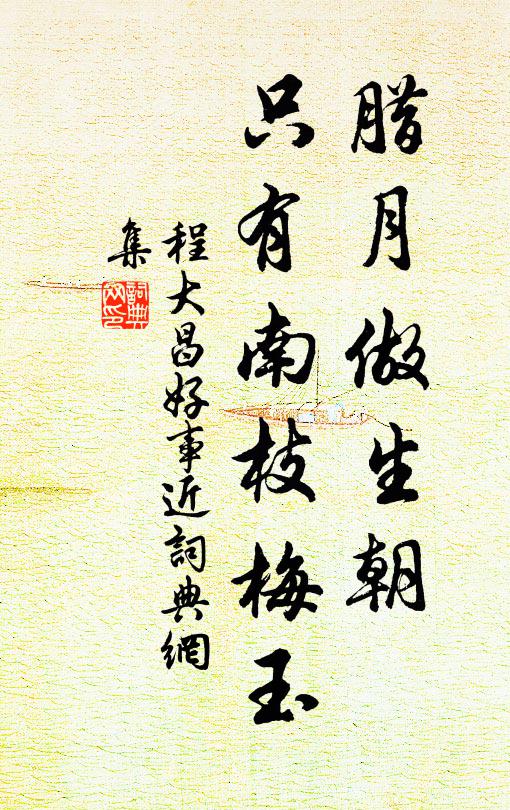 腊月做生朝
只有南枝梅玉
程大昌好事近詞典網
集
詞典
网印